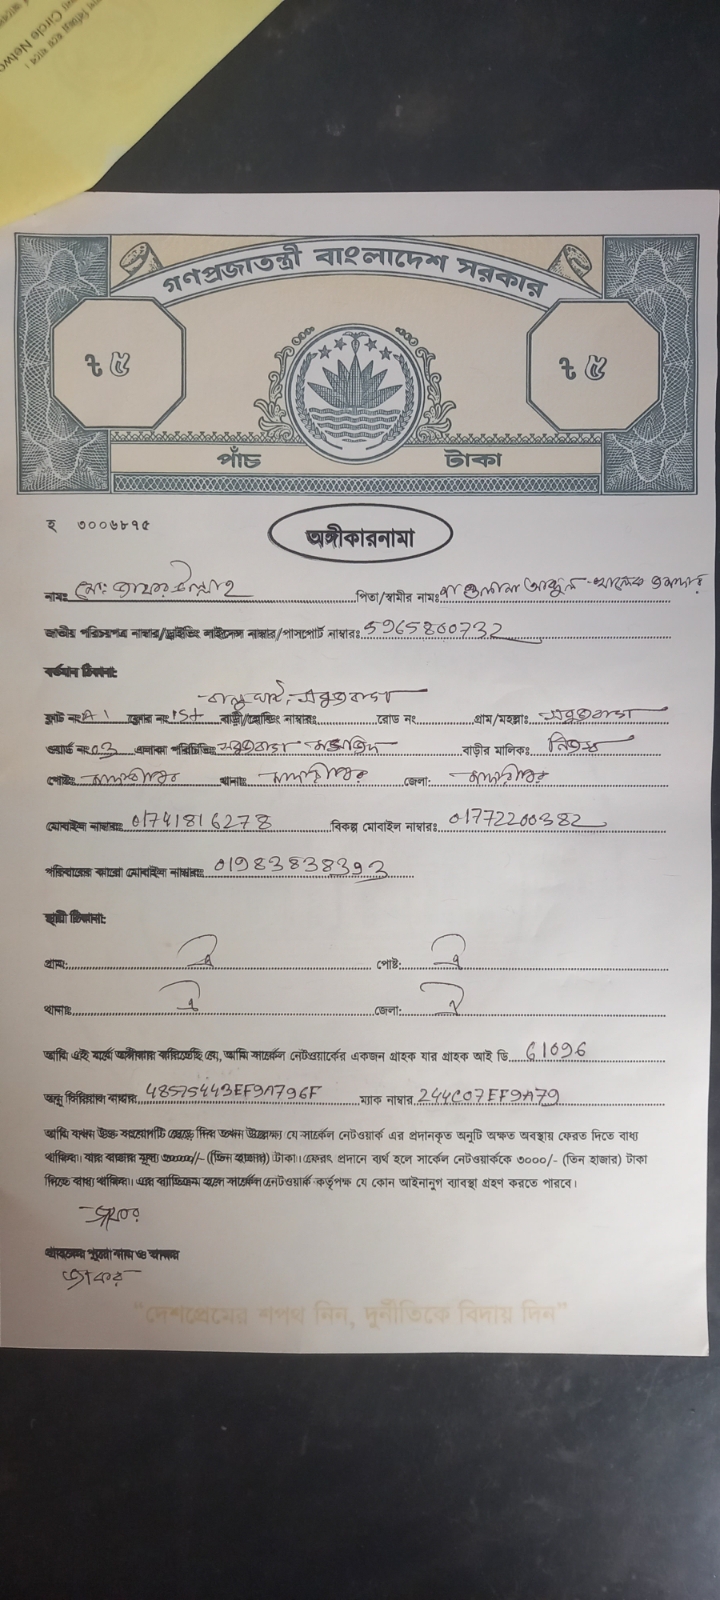 Circle Netwo
গণপ্রজাতন্ত্রী বাংলাদেশ সরকার
৳ ৫ ৳ ৫
পাঁচ টাকা
হ ৩০০৬৮৭৫
অঙ্গীকারনামা
নামঃ মোঃ পিতা/স্বামীর নামঃ মাওলানা আব্দুল খালেক
জাতীয় পরিচয়পত্র নাম্বার/ড্রাইভিং লাইসেন্স নাম্বার/পাসপোর্ট নাম্বারঃ 5965800732
বর্তমান ঠিকানা:
ফ্লাট নংঃ A1 ফ্লোর নংঃ 1st বাড়ী/হোল্ডিং নাম্বারঃ রোড নং গ্রাম/মহল্লাঃ সবুজবাগ
ওয়ার্ড নংঃ 03 এলাকা পরিচিতিঃ সবুজবাগ মসজিদ বাড়ীর মালিকঃ নিজস্ব
পোষ্টঃ মাদারীপুর থানাঃ মাদারীপুর জেলা: মাদারীপুর
মোবাইল নাম্বারঃ 01741816278 বিকল্প মোবাইল নাম্বারঃ 01772200382
পরিবারের কারো মোবাইল নাম্বারঃ 01983838393
স্থায়ী ঠিকানা:
গ্রাম: ঐ পোষ্ট: ঐ
থানাঃ ঐ জেলা: ঐ
আমি এই মর্মে অঙ্গীকার করিতেছি যে, আমি সার্কেল নেটওয়ার্কের একজন গ্রাহক যার গ্রাহক আই ডি 61096
অনু সিরিয়াল নাম্বার 48575443EF9A796F ম্যাক নাম্বার 244C07EF9A79
আমি যখন উক্ত সংযোগটি ছেড়ে দিব তখন উল্লেখ্য যে সার্কেল নেটওয়ার্ক এর প্রদানকৃত অনুটি অক্ষত অবস্থায় ফেরত দিতে বাধ্য
থাকিব। যার বাজার মূল্য ৩০০০/- (তিন হাজার) টাকা। ফেরৎ প্রদানে ব্যর্থ হলে সার্কেল নেটওয়ার্ককে ৩০০০/- (তিন হাজার) টাকা
দিতে বাধ্য থাকিব। এর ব্যতিক্রম হলে সার্কেল নেটওয়ার্ক কর্তৃপক্ষ যে কোন আইনানুগ ব্যবস্থা গ্রহণ করতে পারবে।
গ্রাহকের পুরো নাম ও স্বাক্ষর
"দেশপ্রেমের শপথ নিন, দুর্নীতিকে বিদায় দিন"